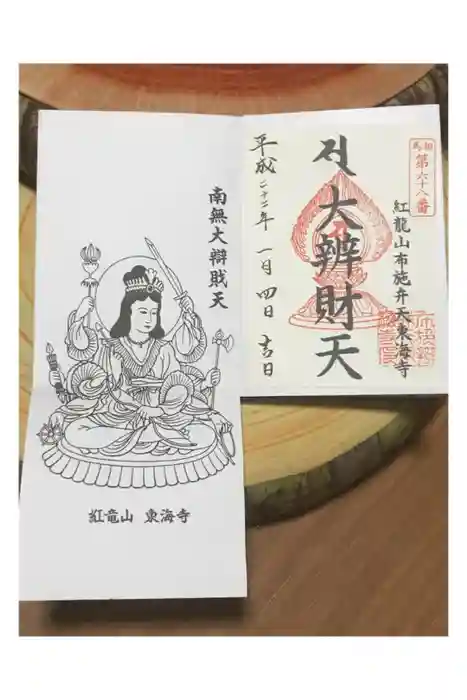 相馬
第六十八番
紅龍山布施弁天東海寺
大辨財天
平成二十二年 一月四日 吉日
南無大辯財天
紅竜山 東海寺